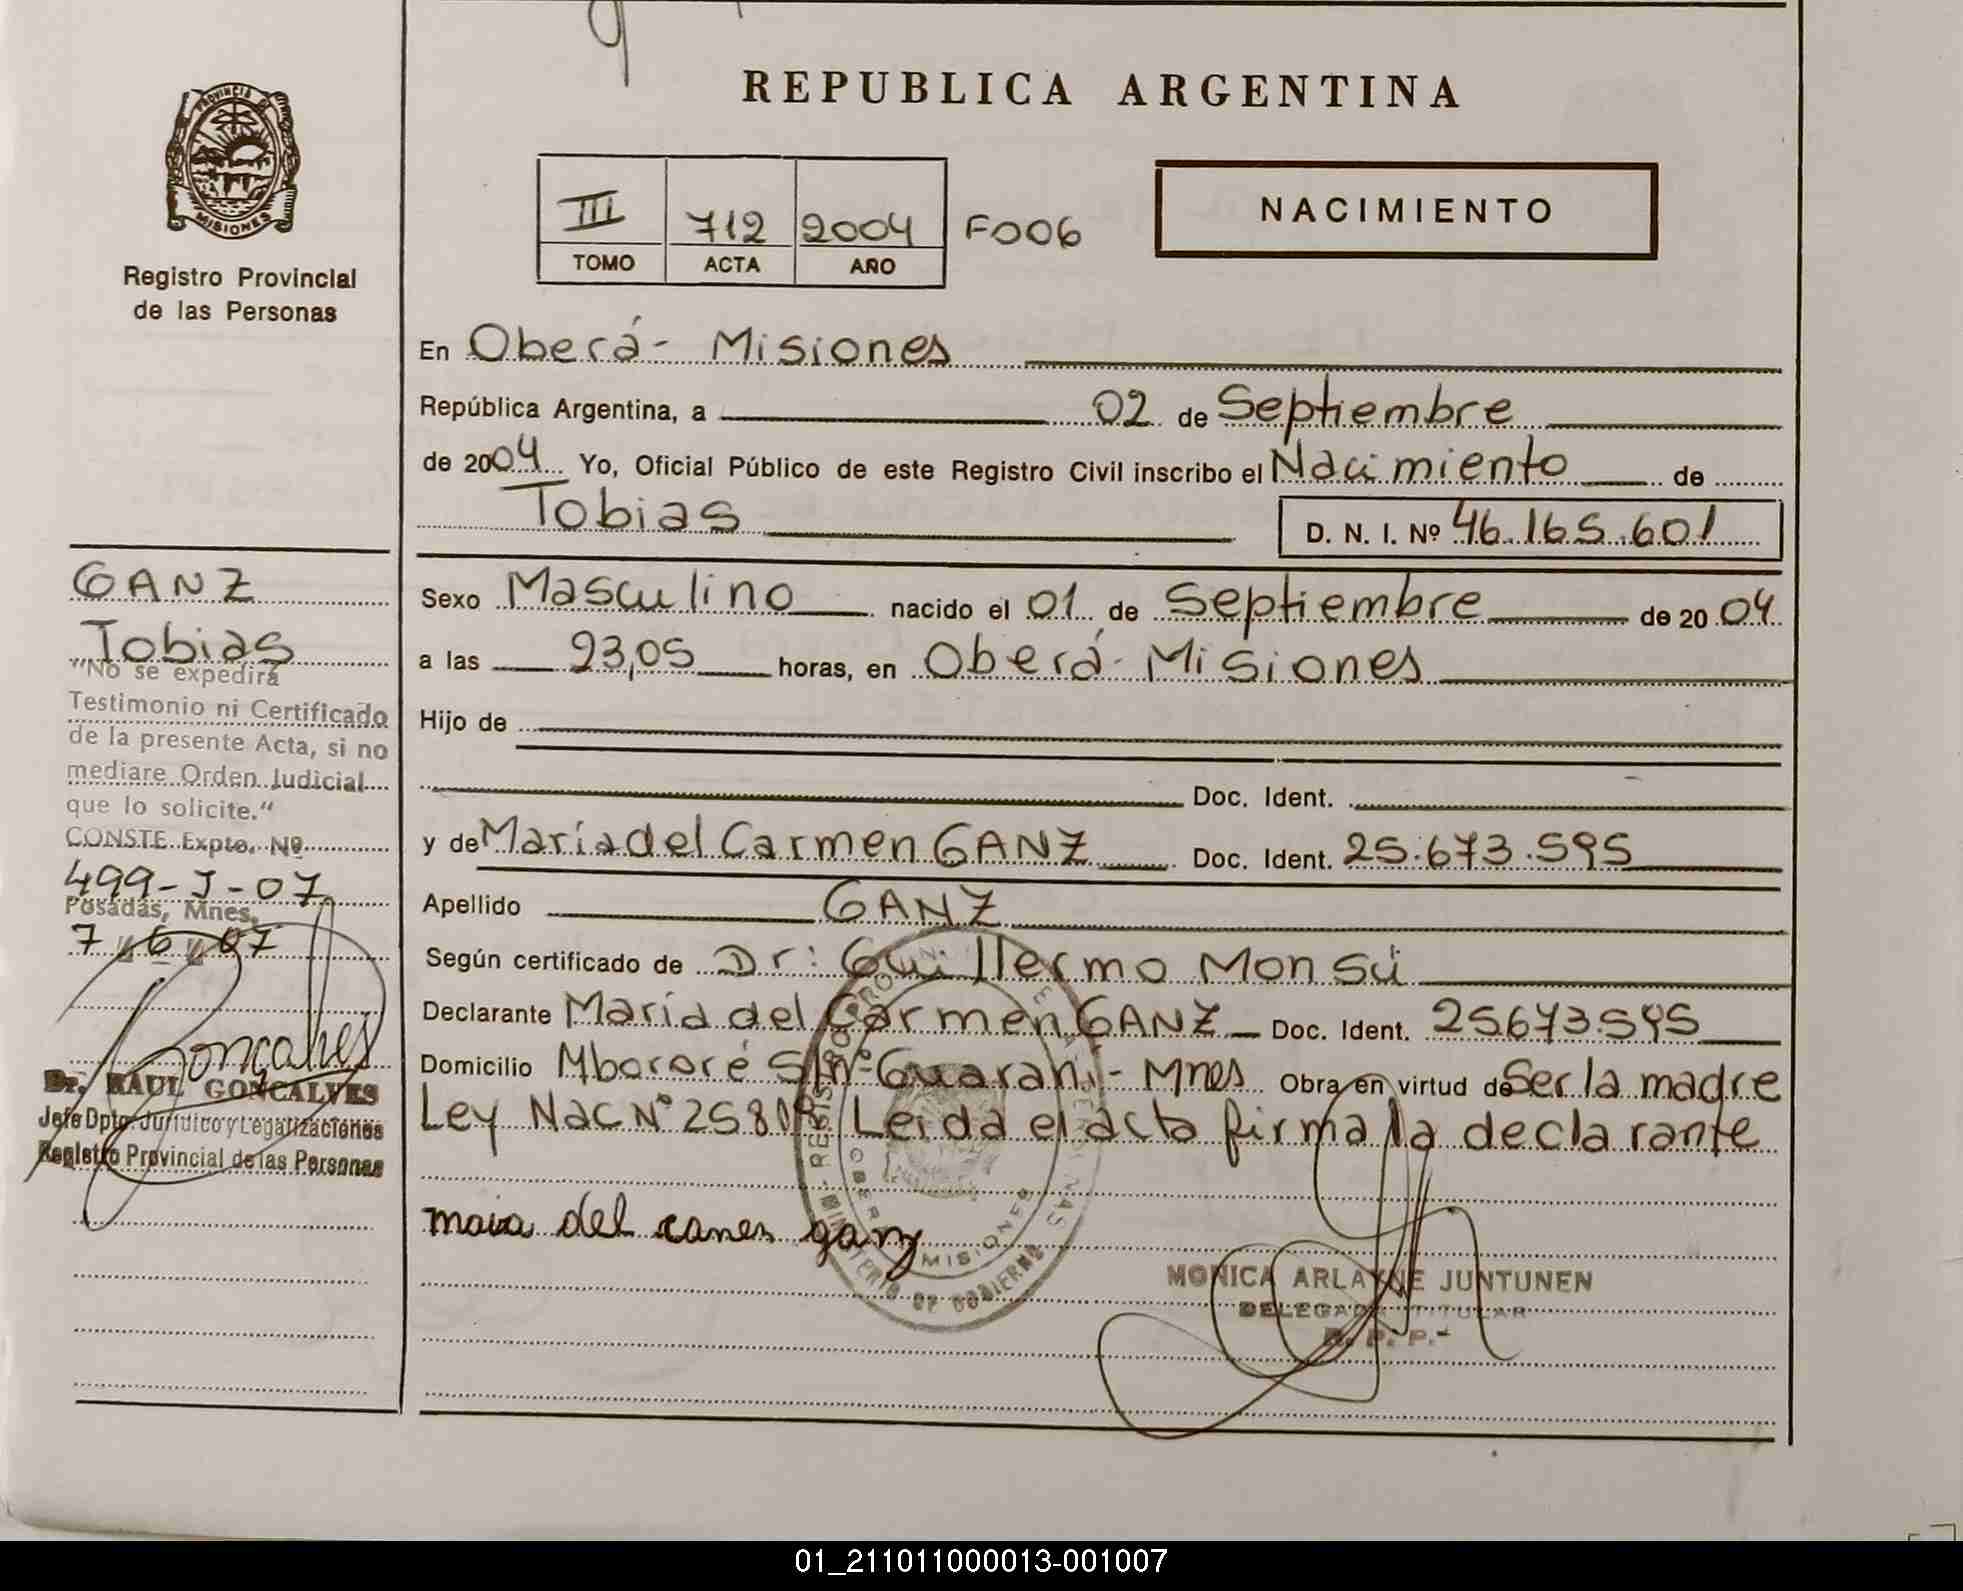 PROVINCIA DE
MISIONES
Registro Provincial
de las Personas
REPUBLICA ARGENTINA
III 712 2004 F006
TOMO ACTA AÑO
NACIMIENTO
En Oberá - Misiones
República Argentina, a 02 de Septiembre
de 2004 Yo, Oficial Público de este Registro Civil inscribo el Nacimiento de
Tobias D. N. I. Nº 46.165.601
Sexo Masculino nacido el 01 de Septiembre de 2004
a las 23,05 horas, en Oberá - Misiones
Hijo de
Doc. Ident.
y de María del Carmen GANZ Doc. Ident. 25.673.595
Apellido GANZ
Según certificado de Dr: Guillermo Monsú
Declarante María del Carmen GANZ Doc. Ident. 25.673.595
Domicilio Mbororé S/Nº Guaraní - Mnes Obra en virtud de Ser la madre
Ley Nac Nº Leida el acta firma la declarante
maia del canes ganz
MISIONES
MONICA ARLAYNE JUNTUNEN
DELEGADA TITULAR
R. P. P.-
GANZ
Tobias
"No se expedirá
Testimonio ni Certificado
de la presente Acta, si no
mediare Orden Judicial
que lo solicite."
CONSTE Expte. Nº
499-J-07
Posadas, Mnes.
7 6 07
Goncalves
Dr. RAUL GONCALVES
Jefe Dpto. Jurídico y Legalizaciones
Registro Provincial de las Personas
01_211011000013-001007